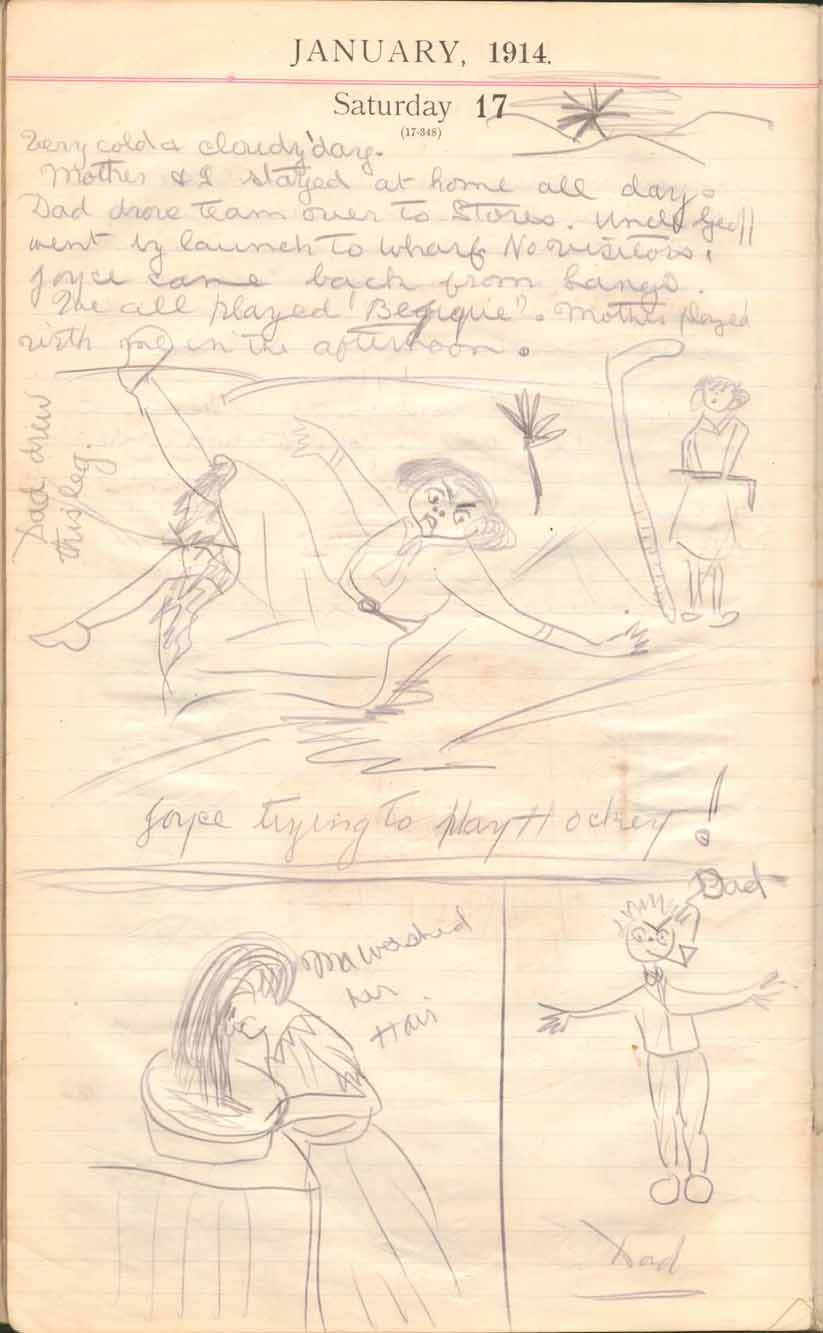 JANUARY, 1914.
Saturday 17
(17-348)
Very cold & cloudy day.
Mother & I stayed at home all day.
Dad drove team over to Stores. Uncle
went by launch to Wharf. No visitors.
Joyce came back from Langs.
We all played "Begique". Mother played
with me in the afternoon.
Dad drew
this leg.
Joyce trying to play Hockey!
Dad
Ma washed
her
Hair
Dad